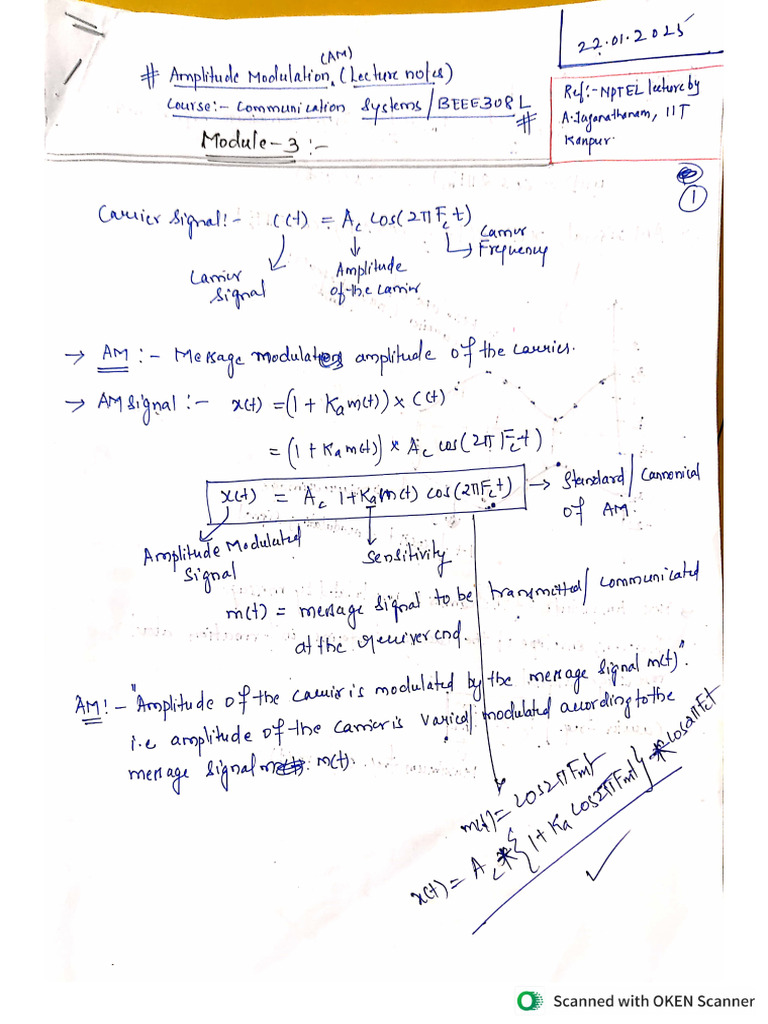 22.01.2025
(AM)
# Amplitude Modulation, (Lecture notes)
Course:- Communication Systems/BEEE308L #
Module-3:-
Ref:- NPTEL lecture by
A. Jaganathanam, IIT
Kanpur.
1
Carrier Signal:- C(t) = Ac cos(2πFct)
Carrier
Signal
Amplitude
of the carrier
Carrier
Frequency
→ AM:- Message modulates amplitude of the carrier.
→ AM signal:- x(t) = (1 + Kam(t)) × C(t)
= (1 + Kam(t)) × Ac cos(2πFct)
x(t) = Ac 1+Kam(t) cos(2πFct) → Standard/Cannonical
of AM.
Amplitude Modulated
Signal
Sensitivity
m(t) = message signal to be transmitted/communicated
at the receiver end.
AM:- "Amplitude of the carrier is modulated by the message signal m(t)".
i.e amplitude of the carrier is varied/modulated according to the
message signal m(t).
m(t) = cos2πFmt
x(t) = Ac * {1 + Ka cos2πFmt} * cos2πFct
Scanned with OKEN Scanner